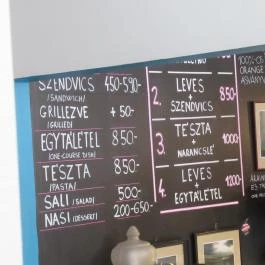 SZENDVICS 450-590-
/SANDWICH/
GRILLEZVE + 50-
/GRILLED/
EGYTÁLÉTEL 850-
(ONE-COURSE DISH)
TÉSZTA 850-
(PASTA)
SALI /SALAD/ 500-
NASI (DESSERT) 200-650-
2. LEVES + SZENDVICS 850-
3. TÉSZTA + NARANCSLÉ 1000-
4. LEVES + EGYTÁLÉTEL 1200-
100%-OS
ORANGE